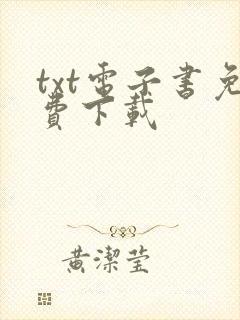 txt電子書免
費下載
黃潔瑩